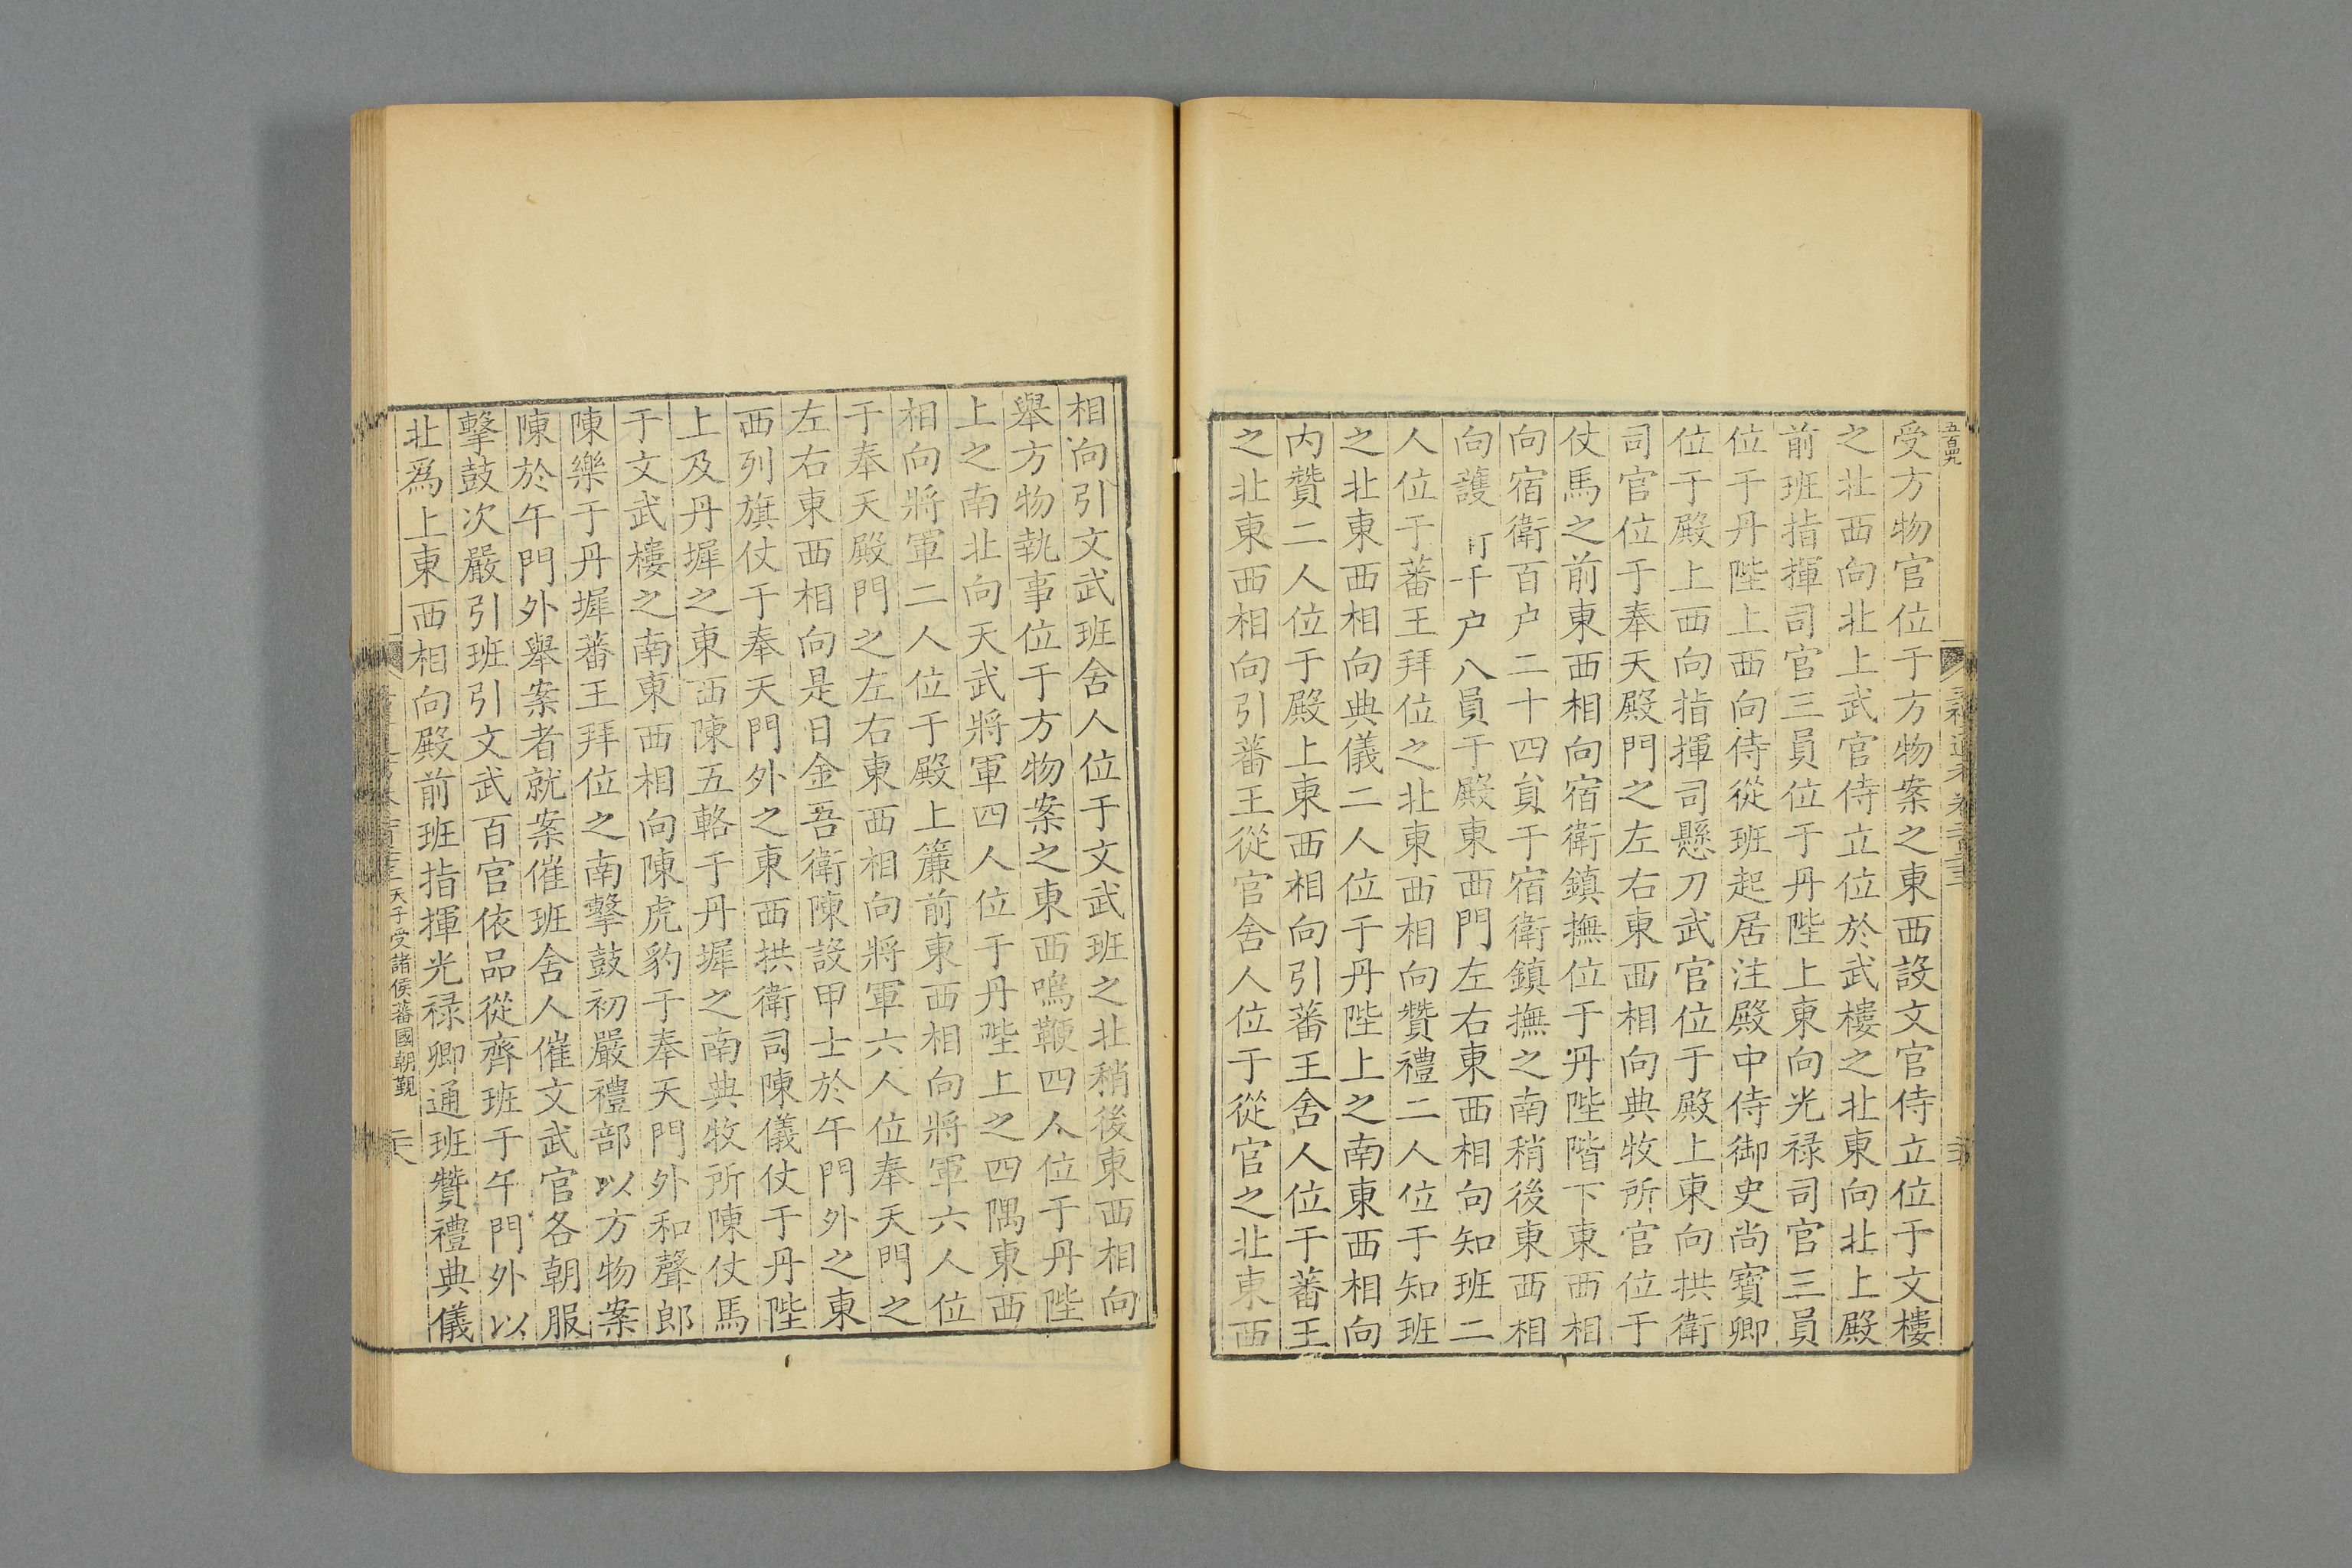 五百四九
受方物官位于方物案之東西設文官侍立位于文樓
之北西向北上武官侍立位於武樓之北東向北上殿
前班指揮司官三員位于丹陛上東向光禄司官三員
位于丹陛上西向侍從班起居注殿中侍御史尚寳卿
位于殿上西向指揮司懸刀武官位于殿上東向拱衛
司官位于奉天殿門之左右東西相向典牧所官位于
仗馬之前東西相向宿衛鎮撫位于丹陛階下東西相
向宿衛百户二十四貟于宿衛鎮撫之南稍後東西相
向護千户八員于殿東西門左右東西相向知班二
人位于蕃王拜位之北東西相向贊禮二人位于知班
之北東西相向典儀二人位于丹陛上之南東西相向
内贊二人位于殿上東西相向引蕃王舍人位于蕃王
之北東西相向引蕃王從官舍人位于從官之北東西
相向引文武班舍人位于文武班之北稍後東西相向
舉方物執事位于方物案之東西鳴鞭四人位于丹陛
上之南北向天武將軍四人位于丹陛上之四隅東西
相向將軍二人位于殿上簾前東西相向將軍六人位
于奉天殿門之左右東西相向將軍六人位奉天門之
左右東西相向是日金吾衛陳設甲士於午門外之東
西列旗仗于奉天門外之東西拱衛司陳儀仗于丹陛
上及丹墀之東西陳五輅于丹墀之南典牧所陳仗馬
于文武樓之南東西相向陳虎豹于奉天門外和聲郎
陳樂于丹墀蕃王拜位之南擊鼓初嚴禮部以方物案
陳於午門外舉案者就案催班舍人催文武官各朝服
擊鼓次嚴引班引文武百官依品從齊班于午門外以
北爲上東西相向殿前班指揮光禄卿通班贊禮典儀
天子受諸侯蕃國朝覲